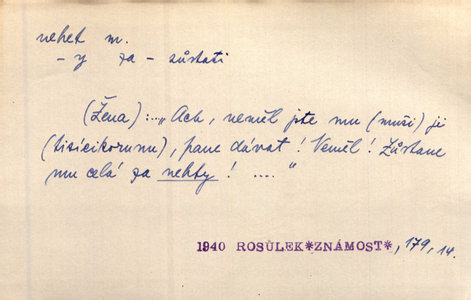 nehet m.
– y za – zůstati
(Žena): ..„Ach, neměl jste mu (muži) ji
(tisícikorunu), pane dávat! Neměl! Zůstane
mu celá za nehty! ...."
1940 ROSŮLEK*ZNÁMOST*, 179, 14.